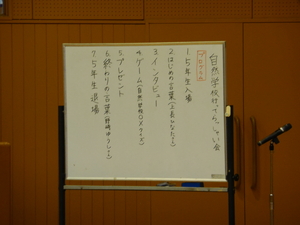 自然学校行ってらっしゃい会
プログラム
1 5年生入場
2 はじめの言葉
3 インタビュー
4 ゲーム(自然学校○×クイズ)
5 プレゼント
6 終わりの言葉
7 5年生退場